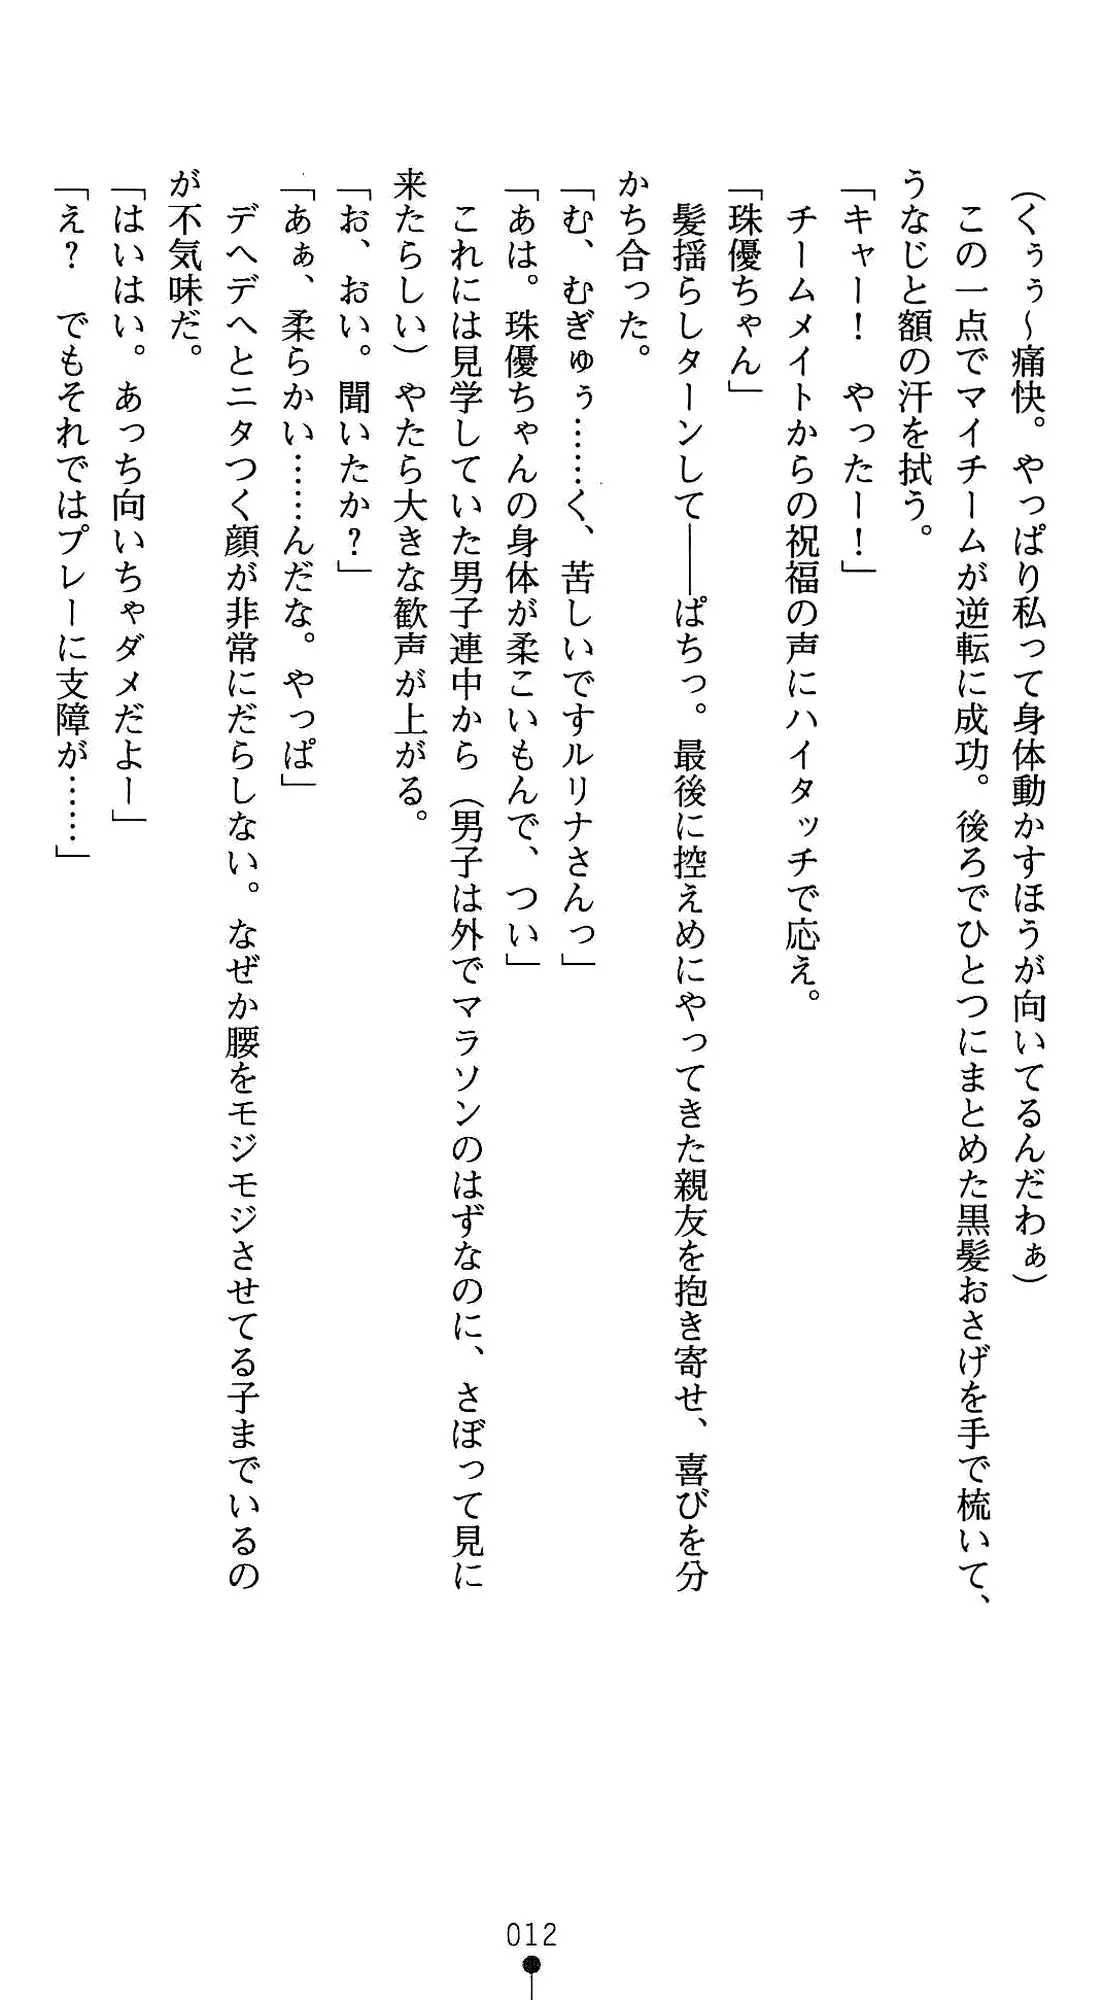 （くぅぅ〜痛快。やっぱり私って身体動かすほうが向いてるんだわぁ）
　この一点でマイチームが逆転に成功。後ろでひとつにまとめた黒髪おさげを手で梳いて、
うなじと額の汗を拭う。
「キャー！　やったー！」
　チームメイトからの祝福の声にハイタッチで応え。
「珠優ちゃん」
　髪揺らしターンして――ぱちっ。最後に控えめにやってきた親友を抱き寄せ、喜びを分
かち合った。
「む、むぎゅぅ……く、苦しいですルリナさんっ」
「あは。珠優ちゃんの身体が柔こいもんで、つい」
　これには見学していた男子連中から（男子は外でマラソンのはずなのに、さぼって見に
来たらしい）やたら大きな歓声が上がる。
「お、おい。聞いたか？」
「あぁ、柔らかい……んだな。やっぱ」
　デヘデヘとニタつく顔が非常にだらしない。なぜか腰をモジモジさせてる子までいるの
が不気味だ。
「はいはい。あっち向いちゃダメだよー」
「え？　でもそれではプレーに支障が……」
012